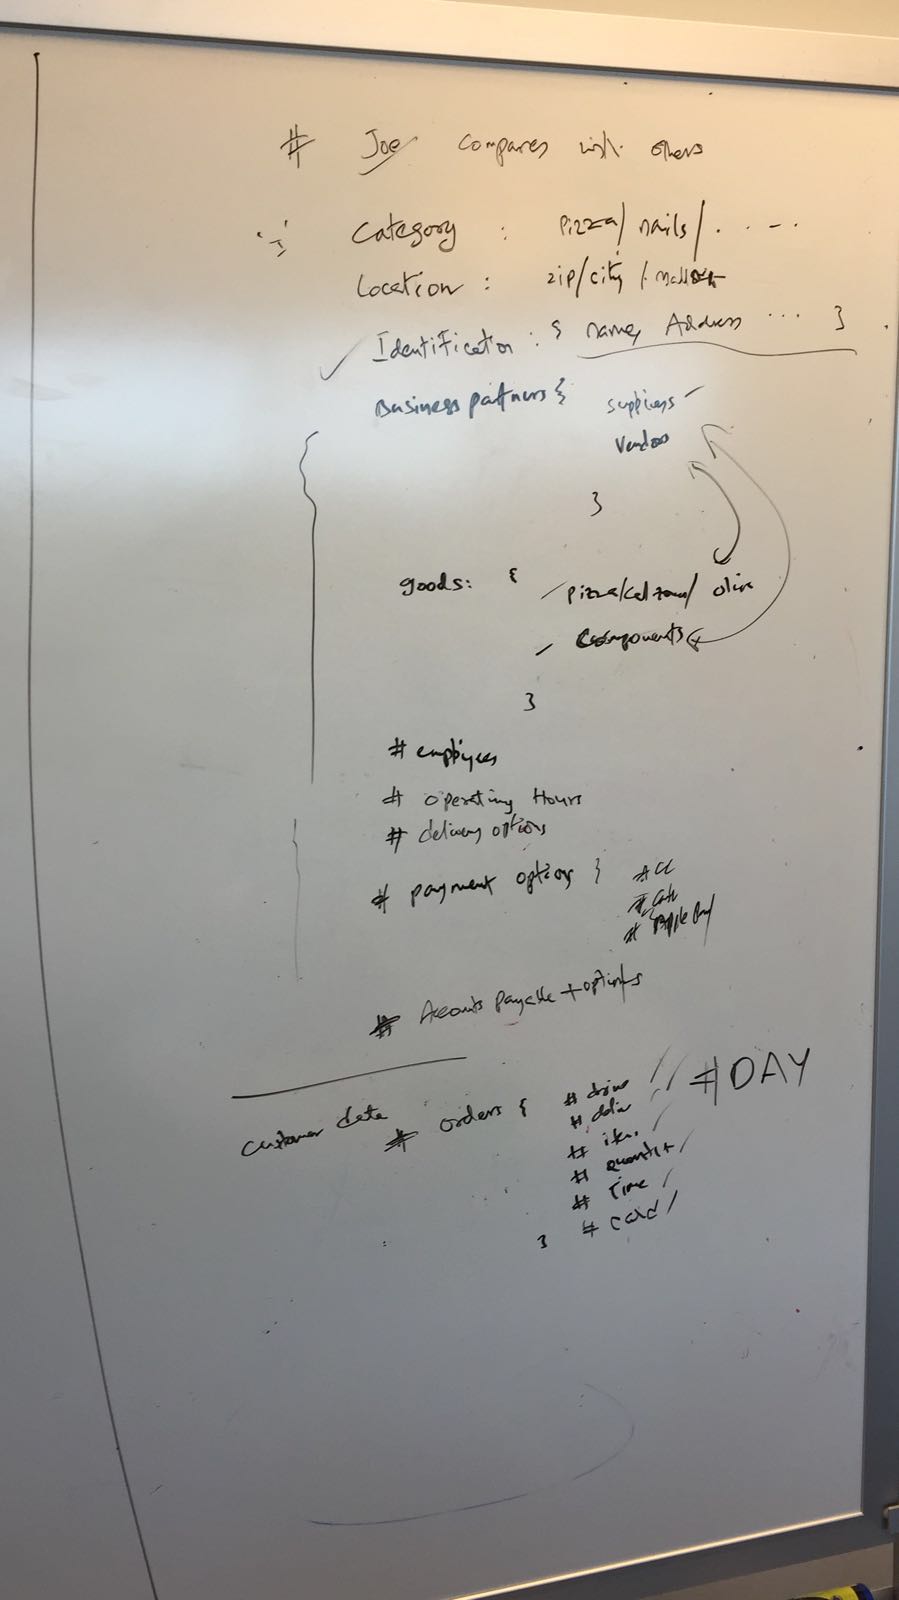 # Joe compares with others
'I' Category : Pizza/ nails/ . . - .
Location : zip/city /
Identification : { name, Address ... }
Business partners {
suppliers
Vendors
}
goods: {
pizza/calzone/ olive
components
}
# employees
# operating Hours
# delivery options
# payment options } # CC
# Cash
# Apple Pay
# Accounts payable + options
customer data # orders { # drive // # DAY
# deliv
# item
# quantity
# Time
} # card